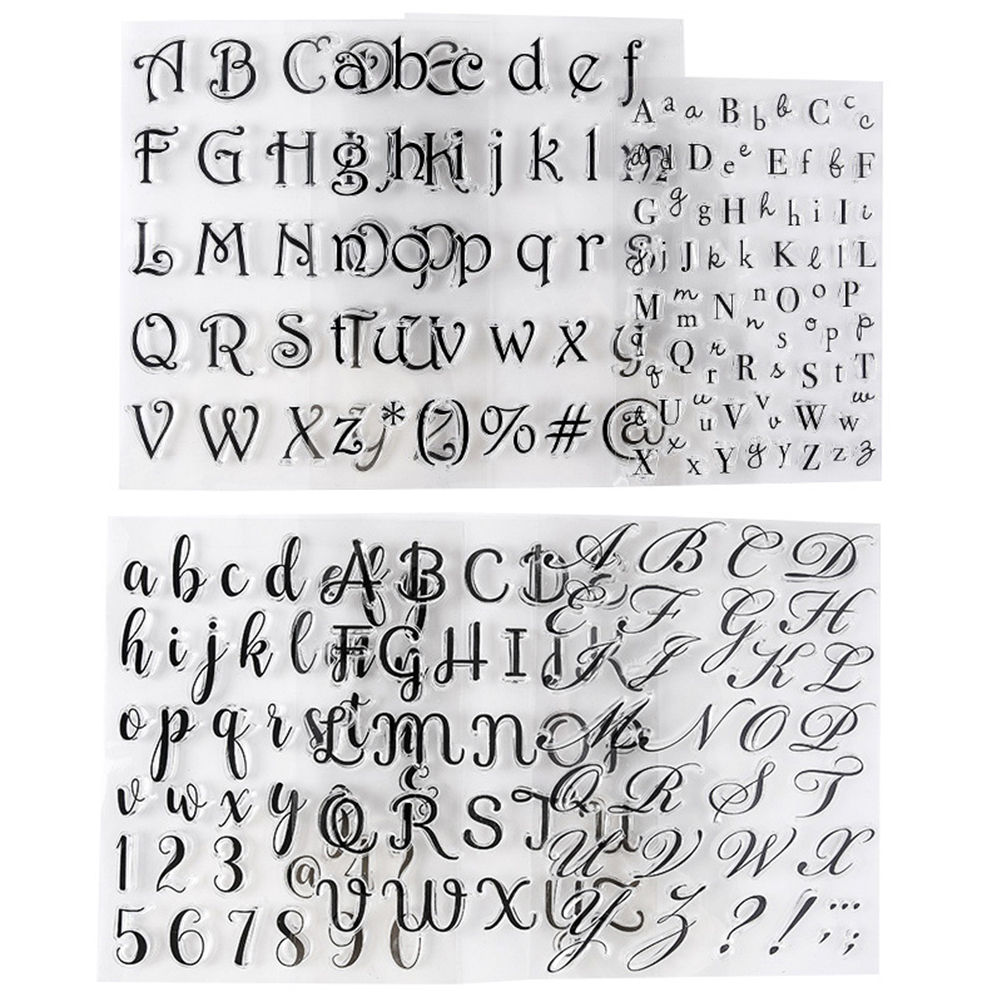 A B C a b c d e f
F G H g h i j k l m
L M N n o p q r s
Q R S t u v w x y
V W X z * ( ) % # @
A a a B b b C c c
d d D e e E f f F
G g g H h h i I i
j j J k k K l l L
M m m N n n O o o P p p
q q Q r r R s s S t T
t U u u V v v W w w
X x x Y y y Z z z
a b c d
h i j k l
o p q r s t
v w x y
1 2 3
5 6 7 8 9 0
@
A B C D
F G H I J K
L M N O P
Q R S T U
V W X Y Z
A B C D
E F G H
I J K L
M N O P
Q R S T
U V W X
Y Z ? ! , ; :